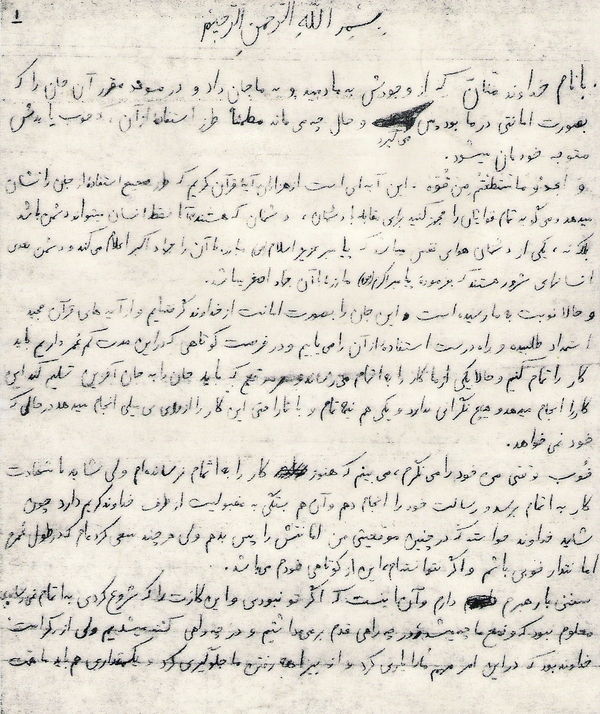 ۱
بسْمِ اللهِ الرَّحمنِ الرَّحیمْ
بانام خداوند منّان که از وجودش به ما دمید و به ما جان داد و در موعد مقرر آن جان را که
بصورت امانتی در ما بوده می‌گیرد و حال چه می ماند مطمئناً طرز استفاده از آن، خوب یا بدش
متوجه خودمان میشود.
و اعدّو ما استطعتم من قُوّه. این آیه‌ای است از هزاران آیهٔ قرآن کریم که طرز صحیح استفاده از جان را نشان
میدهد و می‌گوید تمام قوایتان را مجهز کنید برای مقابله با دشمنان، دشمنان که هستند؟ آیا فقط انسان میتواند دشمن باشد
بلکه نه، یکی از دشمنان هوای نفس میباشد که پیامبر عزیز اسلام (ص) مبارزه با آن را جهاد اکبر اعلام می‌کند و دشمن بعدی
انسانهای شرور هستند که بفرموده پیامبر اکرم (ص) مبارزه با آن جهاد اصغر میباشد.
و حالا نوبت به ما رسیده است و این جان را بصورت امانت از خداوند گرفته‌ایم و از آیه های قرآن مجید
استمداد طلبیده و راه درست استفاده از آن را می‌یابیم و در فرصت کوتاهی که در این مدت کم عمر داریم باید
کار را تمام کنیم و حالا یکی از ما کار را به اتمام می‌رساند و موقع که باید جان را به جان آفرین تسلیم کند این
کار را انجام میدهد و هیچ نگرانی ندارد و یکی هم نیمه تمام و با ناراحتی این کار را از روی بی میلی انجام میدهد در حالی که
خود نمی خواهد.
خوب وقتی من خود را می نگرم، می بینم که هنوز کار را به اتمام نرسانده‌ام ولی شاید با شهادت
کار به اتمام برسد و رسالت خود را انجام دهم و آن هم بستگی به مقبولیت از طرف خداوند کریم دارد چون
شاید خداوند خواسته که در چنین موقعیتی من امانتش را پس بدهم ولی هر چند سعی کرده‌ام که در طول عمرم
امانتدار خوبی باشم و اگر نتوانسته‌ام، این از کوتاهی خودم می‌باشد.
سخنی با رهبرم دارم و آن اینست که اگر تو نبودی و این کارت را که شروع کردی به اتمام نمی‌رساندی
معلوم نبود که وضع ما چه میشد و در چه راهی قدم بر می‌داشتیم و در چه راهی کشته میشدیم ولی از کرامت
خداوند بود که در این امر مهم ما را یاری کرد و از بیراهه رفتن ما جلوگیری کرد و